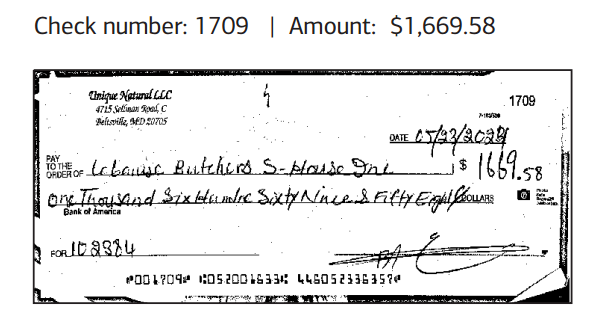 Check number: 1709 | Amount: $1,669.58
Unique Natural LLC
4715 Sellman Road, C
Beltsville, MD 20705
1709
DATE 05/23/2024
PAY
TO THE
ORDER OF Lebanise Butchers S-House Inc $ 1669.58
One Thousand Six Hundre Sixty Nine & Fifty Eight DOLLARS
Bank of America
FOR 102384
⑈001709⑈ ⑆052001633⑆ 446052336357⑈